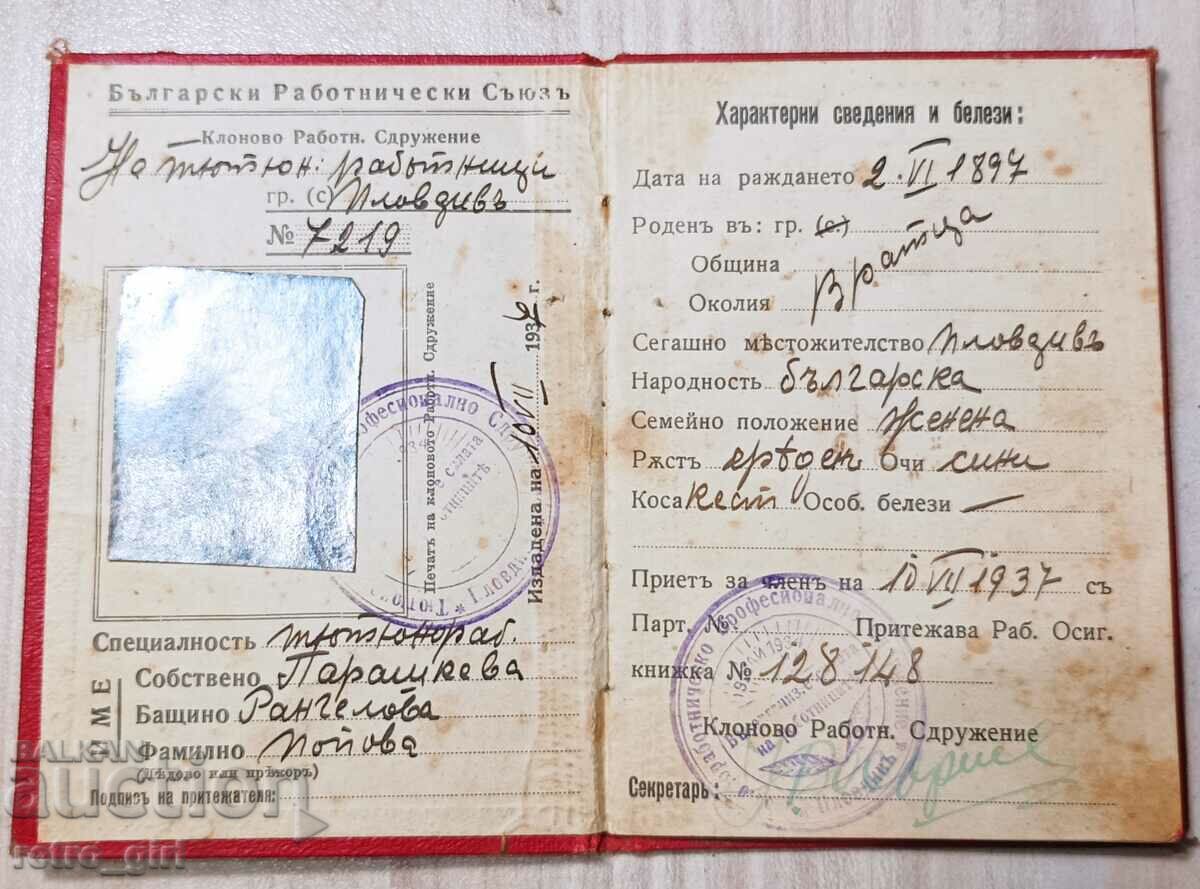 Български Работнически Съюзъ
Клоново Работн. Сдружение
На тютюн. работници
гр. (с) Пловдивъ
№ 7219
Печатъ на клоновото Работн. Сдружение
Издадена на 193 г.
Специалность тютюнораб.
ИМЕ
Собствено Парашкева
Бащино Рангелова
Фамилно Попова
(Дѣдово или прѣкоръ)
Подпись на притежателя:
Характерни сведения и белези:
Дата на раждането 2.VI 1897
Роденъ въ: гр. (с) Вратца
Община
Околия
Сегашно мѣстожителство Пловдивъ
Народность българска
Семейно положение женена
Рѫстъ срѣденъ Очи сини
Коса кест Особ. белези —
Приетъ за членъ на 10 VII 1937 съ
Парт. № Притежава Раб. Осиг.
книжка № 128148
Клоново Работн. Сдружение
Секретарь:
BALKAN
auction
retro_girl